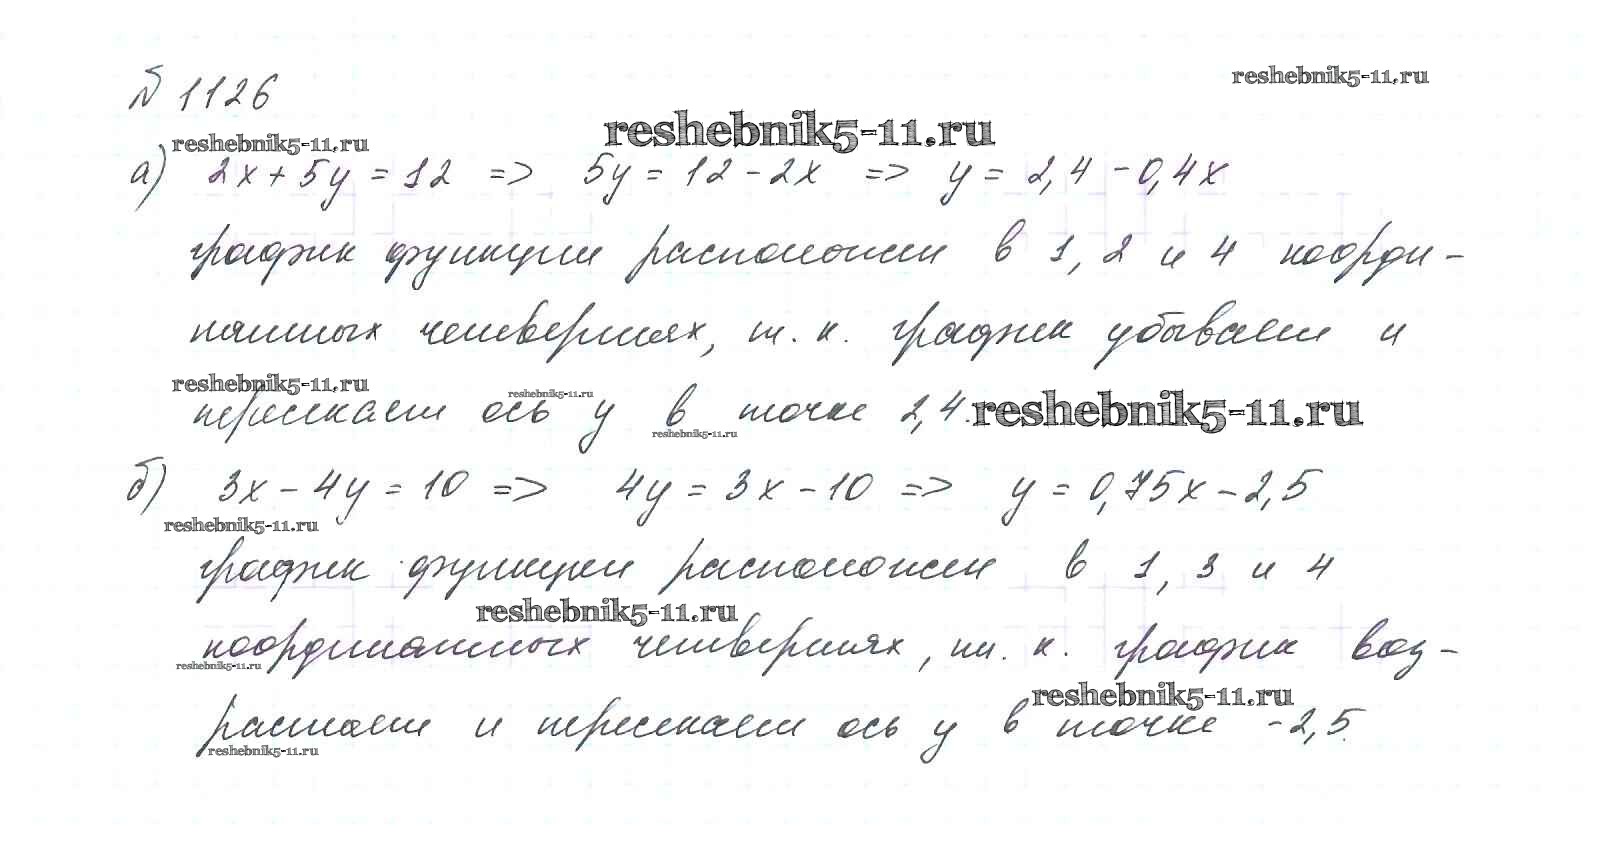 № 1126
reshebnik5-11.ru
reshebnik5-11.ru
reshebnik5-11.ru
а) 2x + 5y = 12 => 5y = 12 - 2x => y = 2,4 - 0,4x
график функции расположен в 1, 2 и 4 коорди-
натных четвертях, т. к. график убывает и
reshebnik5-11.ru
reshebnik5-11.ru
пересекает ось y в точке 2,4.
reshebnik5-11.ru
reshebnik5-11.ru
б) 3x - 4y = 10 => 4y = 3x - 10 => y = 0,75x - 2,5
reshebnik5-11.ru
график функции расположен в 1, 3 и 4
reshebnik5-11.ru
координатных четвертях, т. к. график воз-
reshebnik5-11.ru
reshebnik5-11.ru
растает и пересекает ось y в точке -2,5.
reshebnik5-11.ru